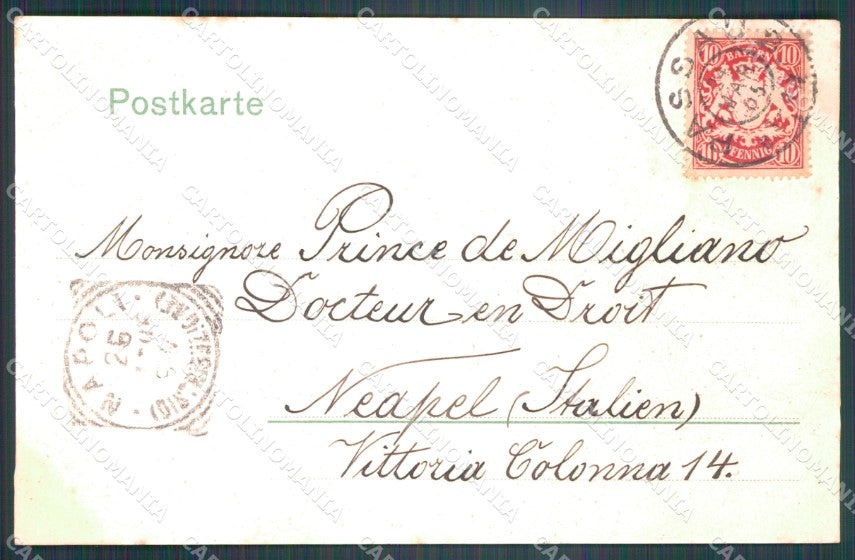 Postkarte
PASSAU
10 BAYERN 10
10 PFENNIG 10
Monsignore Prince de Migliano
Docteur en Droit
Neapel (Italien)
Vittoria Colonna 14.
NAPOLI
26
CARTOLINOMANIA